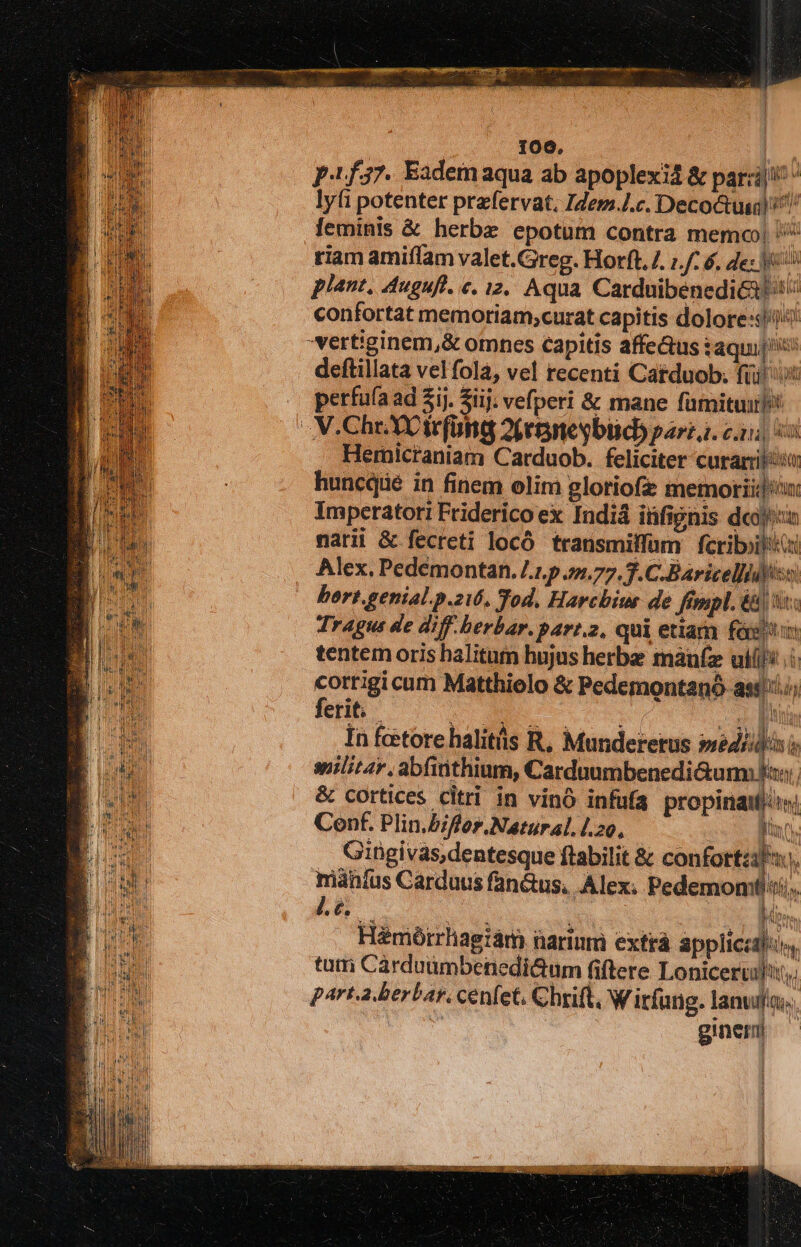 100.
p.1.f.37. Eadem aqua ab apoplexiâ & par
lyſi potenter præſervat. Idem.l.c. Decoctus
ſeminis & herbæ epotum contra memo
riam amiſſam valet. Greg. Horſt. l. 1. ſ. 6. de
plant. Auguſt. c. 12. Aqua Carduibenedict
confortat memoriam, curat capitis dolore
vertiginem, & omnes capitis affectus : aqu
deſtillata vel ſola, vel recenti Carduob.
perfuſa ad ʒij. ʒiij. veſperi & mane ſumitur
V. Chr. Wirſung Artzneybuch part. 1.
Hemicraniam Carduob. feliciter curari
huncque in finem olim glorioſæ memorii
Imperatori Friderico ex Indiâ inſignis
narii & ſecreti locô transmiſſum ſcrib
Alex. Pedemontan. l. 1. p. m. 77. J. C. Baricell
hort. genial. p. 216. Jod. Harchius de ſimpl.
Tragus de diff. herbar. part. 2. qui etiam
tentem oris halitum hujus herbæ manſæ
corrigi cum Matthiolo & Pedemontanô aſ
ferit.
In fœtore halitûs R. Mundererus medi
militar. abſinthium, Carduumbenedictum
& cortices citri in vinô infuſa propinat
Conf. Plin. hiſtor. Natural. l. 20.
Gingivas, dentesque ſtabilit & confort
manſus Carduus ſanctus. Alex. Pedemont
l. c.
Hæmorrhagiam narium extrâ applic
tum Carduumbenedictum ſiſtere Lonicer
part. 2. herbar. cenſet. Chriſt. Wirſung. lanu
ginem